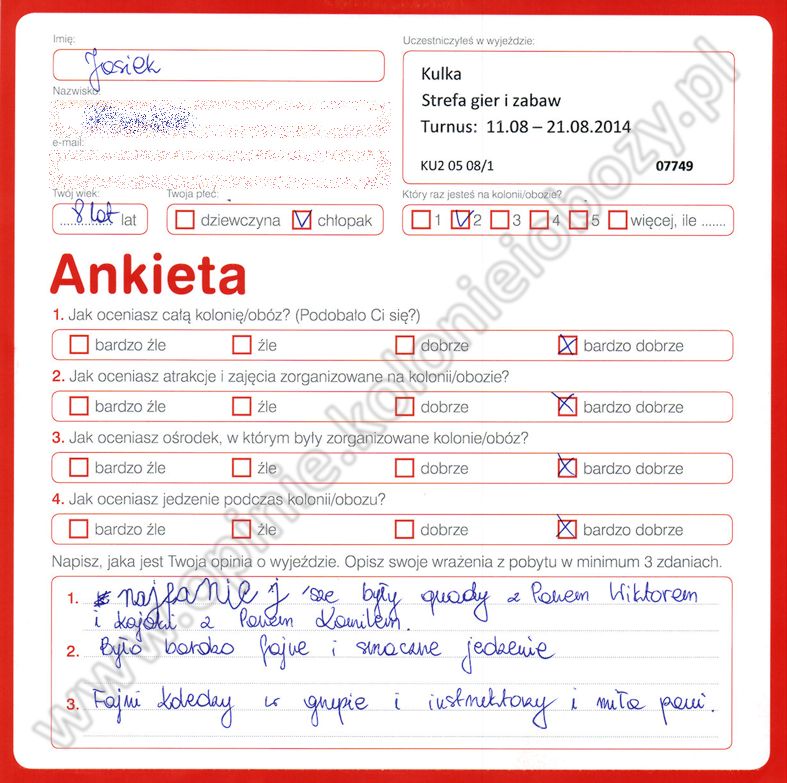 Imię:
Uczestniczyłeś w wyjeździe:
Josiek
Kulka
Strefa gier i zabaw
Turnus: 11.08 – 21.08.2014
KU2 05 08/1 07749
Nazwisko:
e-mail:
Twój wiek:
Twoja płeć:
Który raz jesteś na kolonii/obozie?
8 lat lat
dziewczyna chłopak
1 2 3 4 5 więcej, ile .......
Ankieta
1. Jak oceniasz całą kolonię/obóz? (Podobało Ci się?)
bardzo źle źle dobrze bardzo dobrze
2. Jak oceniasz atrakcje i zajęcia zorganizowane na kolonii/obozie?
bardzo źle źle dobrze bardzo dobrze
3. Jak oceniasz ośrodek, w którym były zorganizowane kolonie/obóz?
bardzo źle źle dobrze bardzo dobrze
4. Jak oceniasz jedzenie podczas kolonii/obozu?
bardzo źle źle dobrze bardzo dobrze
Napisz, jaka jest Twoja opinia o wyjeździe. Opisz swoje wrażenia z pobytu w minimum 3 zdaniach.
1. najfaniej sze były quady z Panem Wiktorem
i kajaki z Panem Kamilem.
2. Było bardzo fajne i smaczne jedzenie
3. Fajni koledzy w grupie i instruktorzy i miła pani.
www.opinie.kolonieiobozy.pl